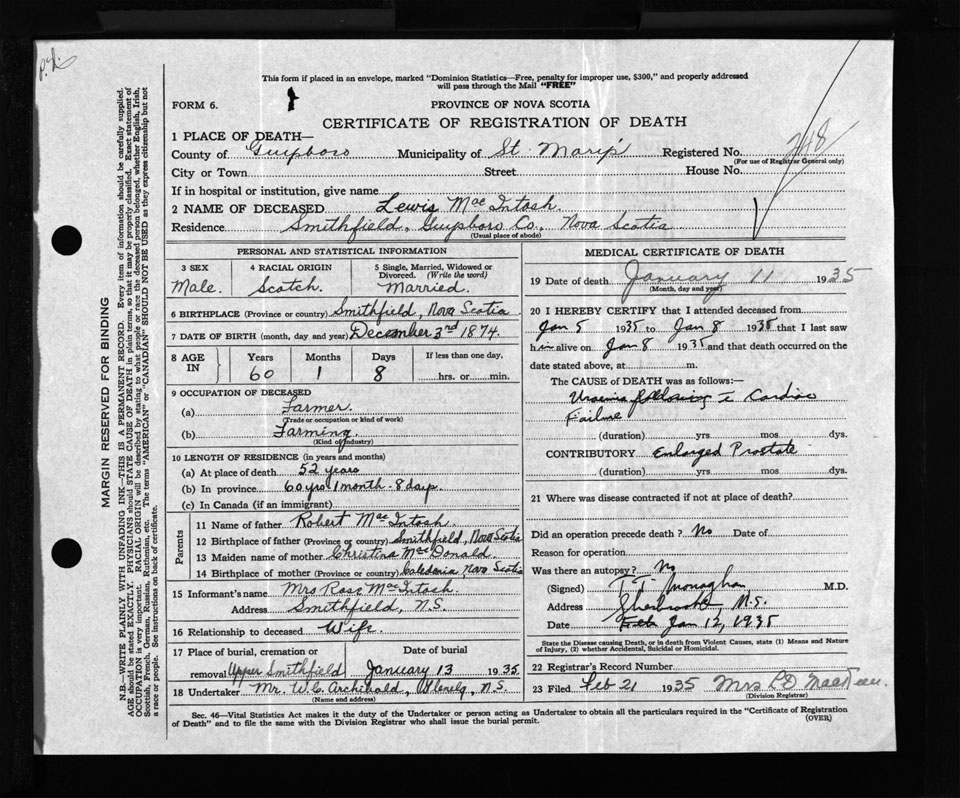 P.L.
This form if placed in an envelope, marked "Dominion Statistics—Free, penalty for improper use, $300," and properly addressed
will pass through the Mail "FREE"
FORM 6.
PROVINCE OF NOVA SCOTIA
CERTIFICATE OF REGISTRATION OF DEATH
1 PLACE OF DEATH—
County of Guysboro Municipality of St. Mary's Registered No. 248
(For use of Registrar General only)
City or Town Street House No.
If in hospital or institution, give name
2 NAME OF DECEASED Lewis MacIntosh.
Residence Smithfield, Guysboro Co., Nova Scotia
(Usual place of abode)
PERSONAL AND STATISTICAL INFORMATION
3 SEX
Male.
4 RACIAL ORIGIN
Scotch.
5 Single, Married, Widowed or
Divorced. (Write the word)
Married.
6 BIRTHPLACE (Province or country) Smithfield, Nova Scotia
7 DATE OF BIRTH (month, day and year) December 3rd 1874.
8 AGE
IN
Years
60
Months
1
Days
8
If less than one day,
hrs. or min.
9 OCCUPATION OF DECEASED
(a) Farmer.
(Trade or occupation or kind of work)
(b) Farming.
(Kind of Industry)
10 LENGTH OF RESIDENCE (in years and months)
(a) At place of death 52 years
(b) In province 60 yrs 1 month - 8 days.
(c) In Canada (if an immigrant)
Parents
11 Name of father Robert MacIntosh.
12 Birthplace of father (Province or country) Smithfield, Nova Scotia
13 Maiden name of mother Christina MacDonald.
14 Birthplace of mother (Province or country) Caledonia, Nova Scotia
15 Informant's name Mrs Rose MacIntosh.
Address Smithfield, N.S.
16 Relationship to deceased Wife.
17 Place of burial, cremation or
removal Upper Smithfield
Date of burial
January 13 1935
18 Undertaker Mr. W.C. Archibald, Glenelg, N.S.
(Name and address)
MEDICAL CERTIFICATE OF DEATH
19 Date of death January 11 1935
(Month, day and year)
20 I HEREBY CERTIFY that I attended deceased from
Jan 5 1935 to Jan 8 1935 that I last saw
him alive on Jan 8 1935 and that death occurred on the
date stated above, at m.
The CAUSE OF DEATH was as follows:—
Uraemia following Cardiac
Failure
(duration) yrs mos dys.
CONTRIBUTORY Enlarged Prostate
(duration) yrs mos dys.
21 Where was disease contracted if not at place of death?
Did an operation precede death? No Date of
Reason for operation
Was there an autopsy? No
(Signed) T.T. Monaghan M.D.
Address Sherbrooke, N.S.
Date Feb Jan 12, 1935
State the Disease causing Death, or in death from Violent Causes, state (1) Means and Nature
of Injury, (2) whether Accidental, Suicidal or Homicidal.
22 Registrar's Record Number
23 Filed Feb 21 1935 Mrs P.D.
(Division Registrar)
Sec. 46—Vital Statistics Act makes it the duty of the Undertaker or person acting as Undertaker to obtain all the particulars required in the "Certificate of Registration
of Death" and to file the same with the Division Registrar who shall issue the burial permit.
(OVER)
MARGIN RESERVED FOR BINDING
N.B.—WRITE PLAINLY WITH UNFADING INK—THIS IS A PERMANENT RECORD. Every item of information should be carefully supplied.
AGE should be stated EXACTLY. PHYSICIANS should STATE CAUSE OF DEATH in plain terms, so that it may be properly classified. Exact statement of
OCCUPATION is very important. RACIAL ORIGIN will be described by stating to what people or race the deceased person belonged, whether English, Irish,
Scottish, French, German, Russian, Ruthenian, etc. The terms "AMERICAN" or "CANADIAN" SHOULD NOT BE USED as they express citizenship but not
a race or people. See instructions on back of certificate.